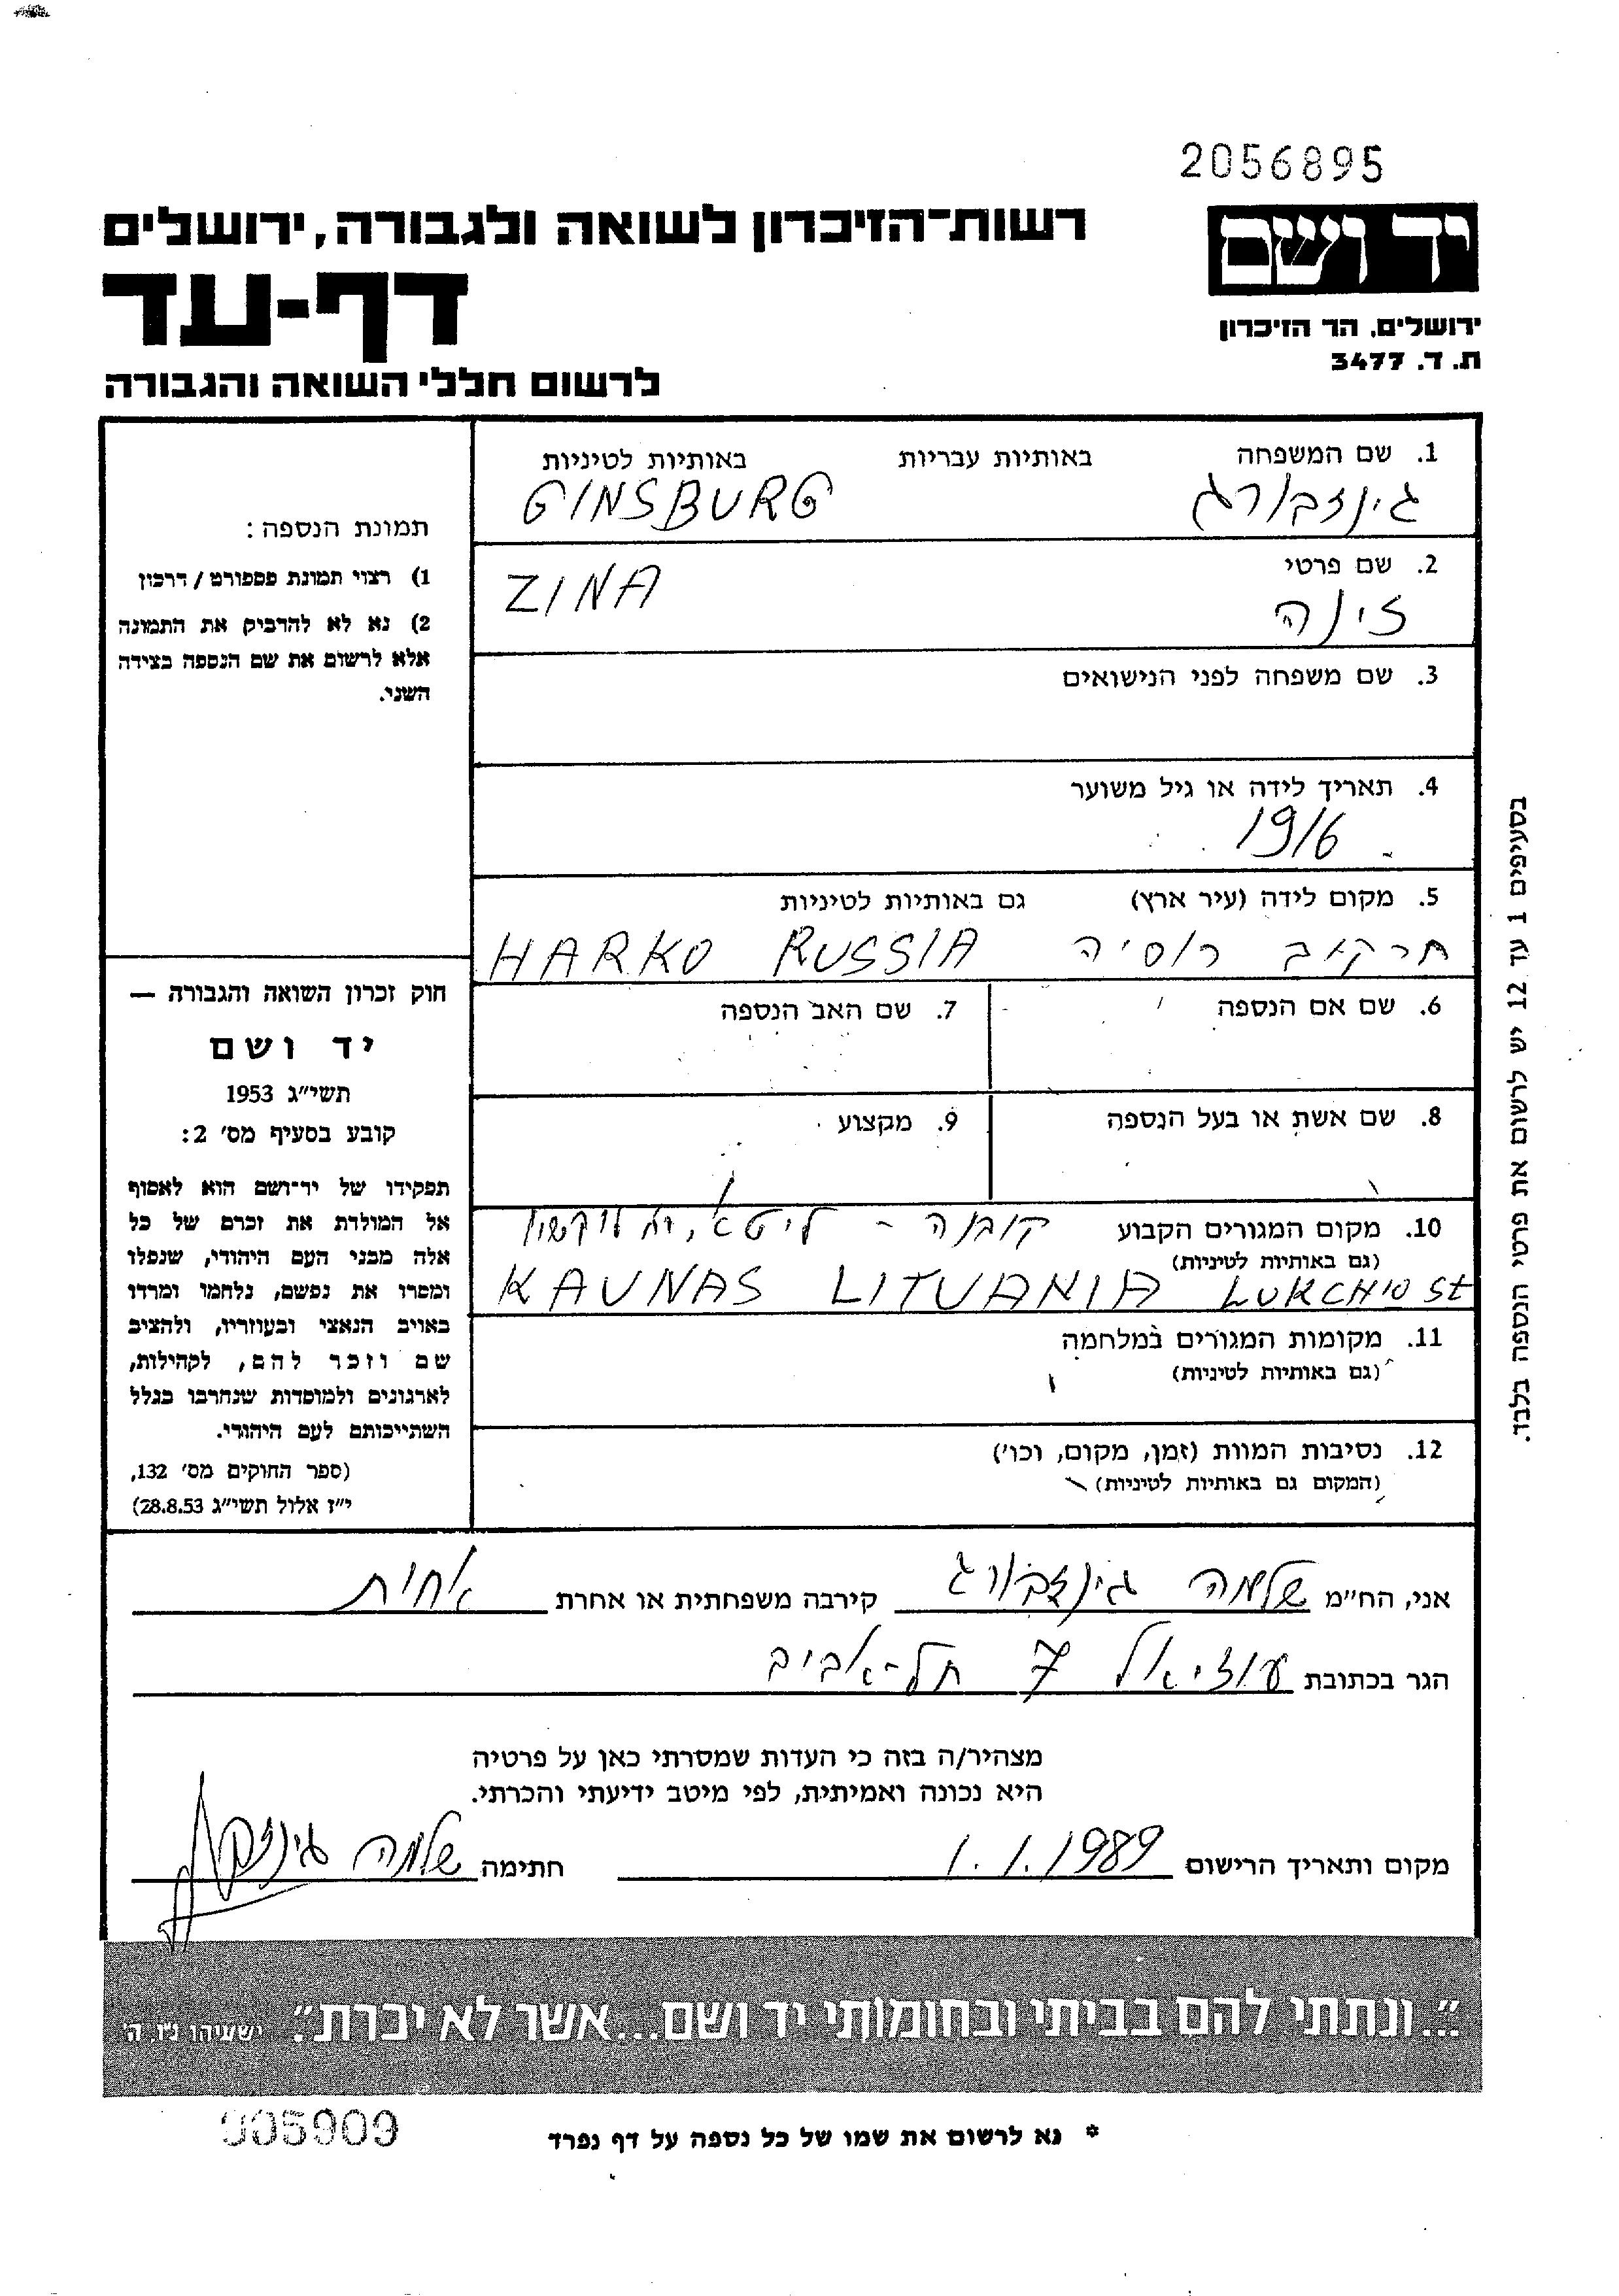 2056895
יד ושם
רשות־הזיכרון לשואה ולגבורה, ירושלים
דף-עד
ירושלים, הר הזיכרון
ת. ד. 3477
לרשום חללי השואה והגבורה
1. שם המשפחה באותיות עבריות באותיות לטיניות
גינזבורג GINSBURG
2. שם פרטי
זינה ZINA
3. שם משפחה לפני הנישואים
4. תאריך לידה או גיל משוער
1916
5. מקום לידה (עיר ארץ) גם באותיות לטיניות
חרקוב רוסיה HARKO RUSSIA
6. שם אם הנספה 7. שם האב הנספה
8. שם אשת או בעל הנספה 9. מקצוע
10. מקום המגורים הקבוע קובנה - ליטא, רח
(גם באותיות לטיניות)
KAUNAS LITUANIA LUKCHIO St
11. מקומות המגורים במלחמה
(גם באותיות לטיניות)
12. נסיבות המוות (זמן, מקום, וכו')
(המקום גם באותיות לטיניות)
תמונת הנספה:
1) רצוי תמונת פספורט / דרכון
2) נא לא להדביק את התמונה
אלא לרשום את שם הנספה בצידה
השני.
חוק זכרון השואה והגבורה —
יד ושם
תשי"ג 1953
קובע בסעיף מס' 2:
תפקידו של יד־ושם הוא לאסוף
אל המולדת את זכרם של כל
אלה מבני העם היהודי, שנפלו
ומסרו את נפשם, נלחמו ומרדו
באויב הנאצי ובעוזריו, ולהציב
שם וזכר להם, לקהילות,
לארגונים ולמוסדות שנחרבו בגלל
השתייכותם לעם היהודי.
(ספר החוקים מס' 132,
י"ז אלול תשי"ג 28.8.53)
בסעיפים 1 עד 12 יש לרשום את פרטי הנספה בלבד.
אני, הח"מ שלמה גינזבורג קירבה משפחתית או אחרת אחות
הגר בכתובת עוזיאל 7 תל-אביב
מצהיר/ה בזה כי העדות שמסרתי כאן על פרטיה
היא נכונה ואמיתית, לפי מיטב ידיעתי והכרתי.
מקום ותאריך הרישום 1.1.1989 חתימה שלמה
"...ונתתי להם בביתי ובחומותי יד ושם...אשר לא יכרת". ישעיהו נ"ו, ה'
* נא לרשום את שמו של כל נספה על דף נפרד
005909